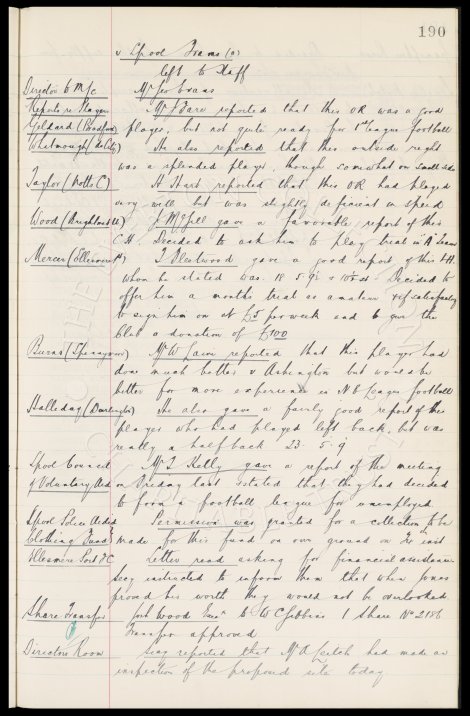 190
v Lpool Trams (a)
left to Staff
Director to M/c Mr Geo Evans
Reports re Players Mr J Bare reported that this OR was a good
Geldard (Bradford) player, but not quite ready for 1st League football
Whatmough (do City) He also reported that this outside right
was a splendid player, though somewhat on small side
Taylor (Notts C) H Hart reported that this OR had played
very well but was slightly deficient in speed
Wood (Brightmet Utd) J McGill gave a favorable report of this
C.H. Decided to ask him to play trial in A Team
Mercer (Ellesmere Pt) T Fleetwood gave a good report of this LH
whom he stated was 18 5.9½ & 10 st. Decided to
offer him a months trial as amateur & if satisfactory
to sign him on at £5 per week and to give the
Club a donation of £100
Burns (Spennymoor) Mr W Cain reported that this player had
done much better v Ashington but would be
better for more experience in N E League football
Halleday (Darlington) He also gave a fairly good report of this
player who had played left back, but was
really a half back 23. 5.9
Lpool Council Mr T Kelly gave a report of the meeting
of Voluntary Aid on Friday last & stated that they had decided
to form a football league for unemployed
Lpool Police Aided Permission was granted for a collection to be
Clothing Fund made for this fund on our ground on inst
Ellesmere Port FC Letter read asking for financial assistance.
Secy instructed to inform them that when Jones
proved his worth they would not be overlooked
Share Transfer Josh Wood to W C Gibbins 1 Share No 2186
Transfer approved
Directors Room Secy reported that Mr A Leitch had made an
inspection of the proposed site today